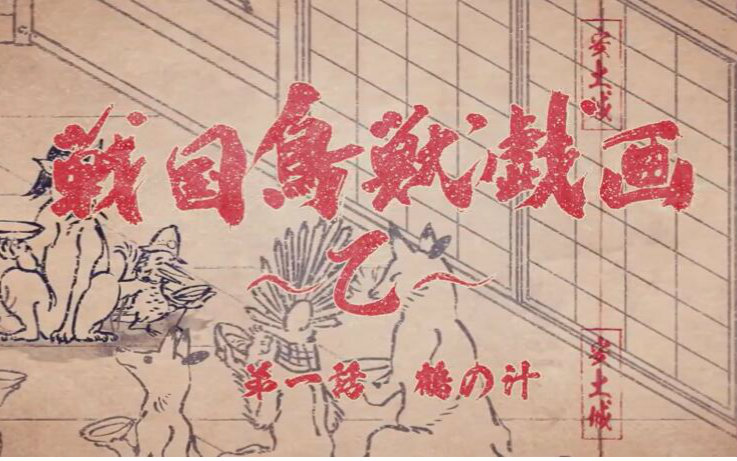 戦国鳥獣戯画
～乙～
第一話 鶴の汁
安土城
安土城